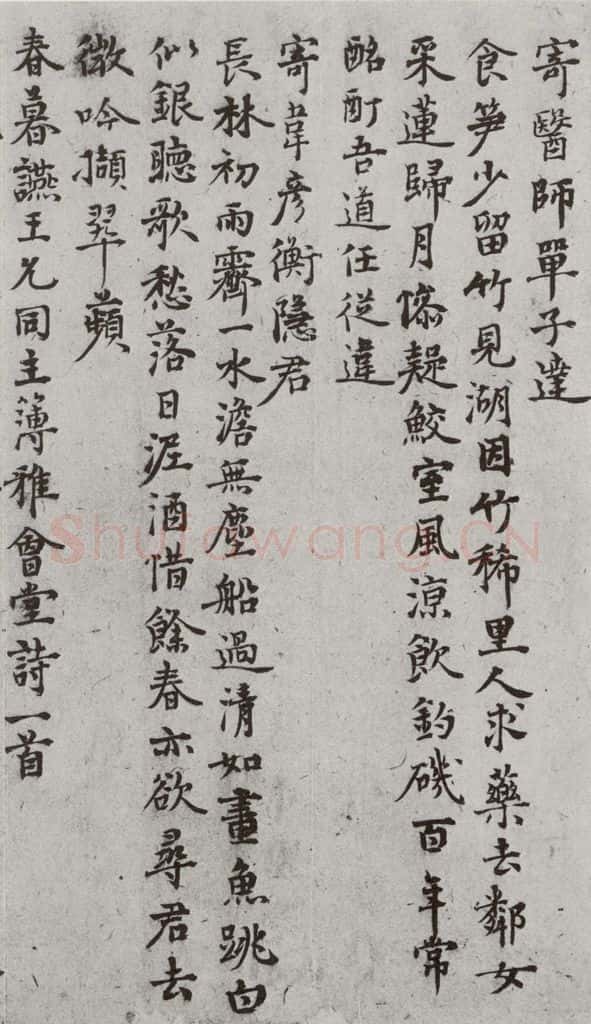 寄醫師單子達
食笋少留竹見湖因竹稀里人求藥去鄰女
采蓮歸月滲疑鮫室風涼飲釣磯百年常
酩酊吾道任從違
寄韋彥衡隱君
長林初雨霽一水澹無塵船過清如畫魚跳白
似銀聽歌愁落日泥酒惜餘春亦欲尋君去
微吟擷翠蘋
春暮讌王允同主簿雅會堂詩一首
Shufawang.CN